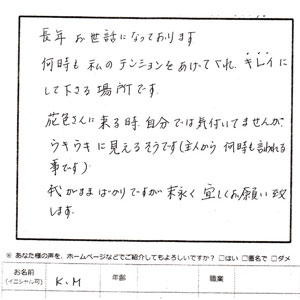 長年 お世話になっております
何時も 私の テンションを あげてくれ、キレイに
して下さる 場所です。
花色さんに 来る時、自分では 気付いてませんが、
ウキウキに 見えるそうです(主人から 何時も言われる
事です)
我がまま ばかりですが 末永く 宜しくお願い致
します。
※ あなた様の声を、ホームページなどでご紹介してもよろしいですか? □はい □匿名で □ダメ
お名前
(イニシャル可)
K.M
年齢
職業